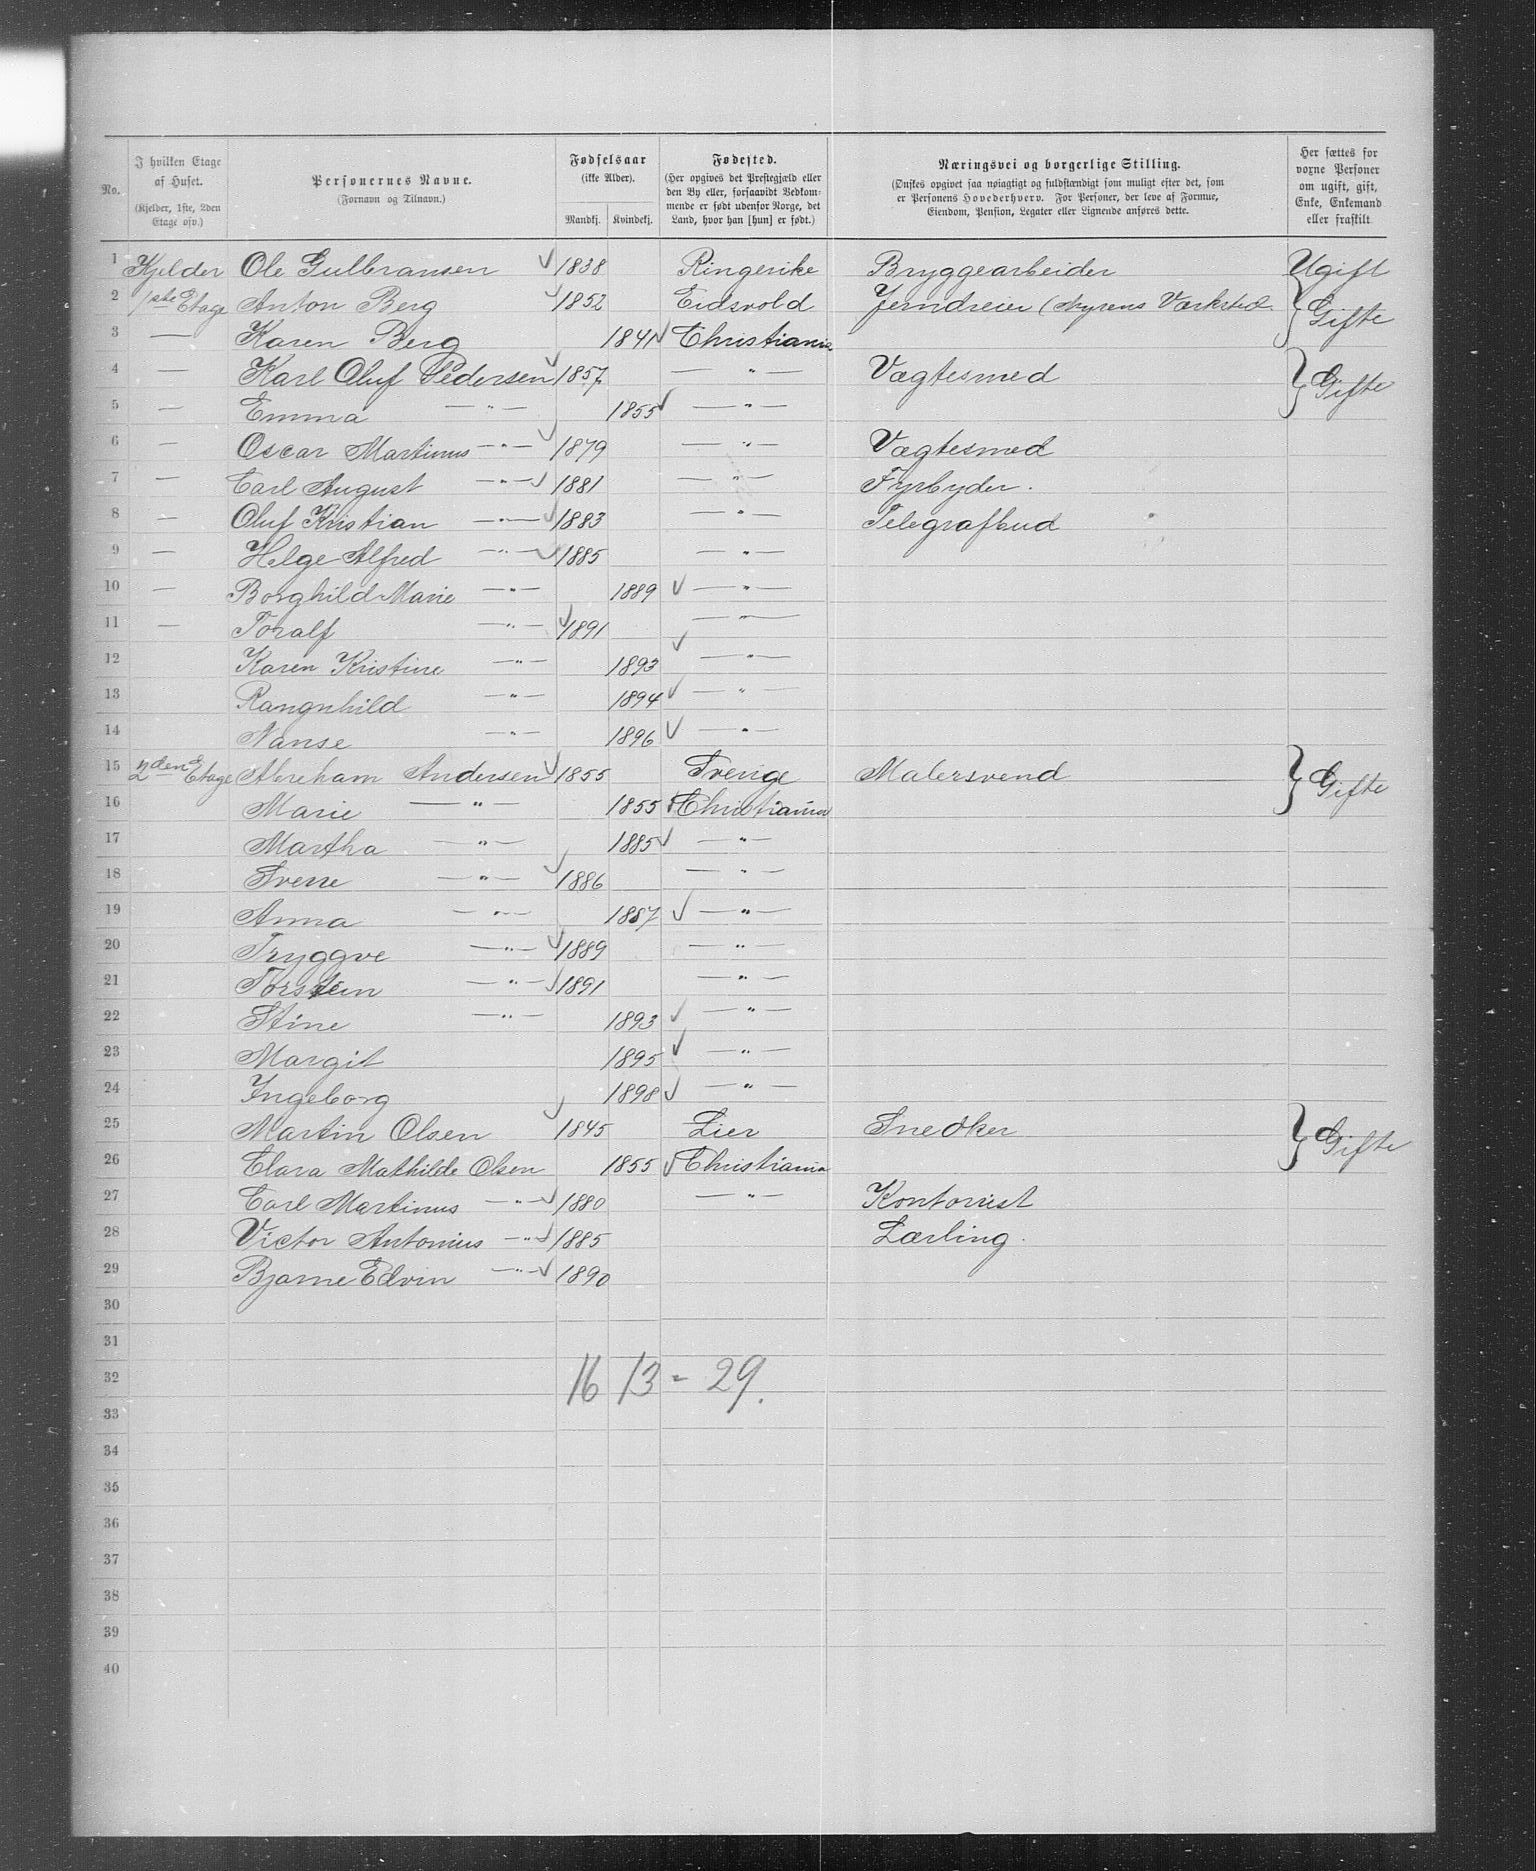 No.
I hvilken Etage
af Huset.
(Kjelder, 1ste, 2den
Etage osv.)
Personernes Navne.
(Fornavn og Tilnavn.)
Fødselsaar
(ikke Alder).
Mandkj. Kvindekj.
Fødested.
(Her opgives det Prestegjæld eller
den By eller, forsaavidt Vedkom-
mende er født udenfor Norge, det
Land, hvor han [hun] er født.)
Næringsvei og borgerlige Stilling.
(Ønskes opgivet saa nøiagtigt og fuldstændigt som muligt efter det, som
er Personens Hovederhverv. For Personer, der leve af Formue,
Eiendom, Pension, Legater eller Lignende anføres dette.
Her sættes for
voxne Personer
om ugift, gift,
Enke, Enkemand
eller fraskilt
1 Kjelder Ole Gulbransen 1838 Ringerike Bryggearbeider Ugift
2 1ste Etage Anton Berg 1852 Eidsvold Jerndreier (Nyrens Værksted } Gifte
3 — Karen Berg 1841 Christiania
4 — Karl Oluf Pedersen 1857 — " — Vægtesmed } Gifte
5 — Emma — " — 1855 — " —
6 — Oscar Martinus — " — 1879 — " — Vægtesmed
7 — Carl August — " — 1881 — " — Fyrbyder.
8 — Oluf Kristian — " — 1883 — " — Telegrafbud
9 — Helge Alfred — " — 1885 — " —
10 — Borghild Marie — " — 1889 — " —
11 — Toralf — " — 1891 — " —
12 Karen Kristine — " — 1893 — " —
13 Rangnhild — " — 1894 — " —
14 Nanse — " — 1896 — " —
15 2den Etage Abreham Andersen 1855 Sverige Malersvend } Gifte
16 Marie — " — 1855 Christiania
17 Martha — " — 1885 — " —
18 Sverre — " — 1886 — " —
19 Anna — " — 1887 — " —
20 Tryggve — " — 1889 — " —
21 Torstein — " — 1891 — " —
22 Stine — " — 1893 — " —
23 Margit 1895 — " —
24 Ingeborg 1898 — " —
25 Martin Olsen 1845 Lier Snedker } Gifte
26 Clara Mathilde Olsen 1855 Christiania
27 Carl Martinus — " — 1880 — " — Kontorist
28 Victor Antonius — " — 1885 Lærling.
29 Bjarne Edvin — " — 1890
30
31
32 16 13 = 29.
33
34
35
36
37
38
39
40